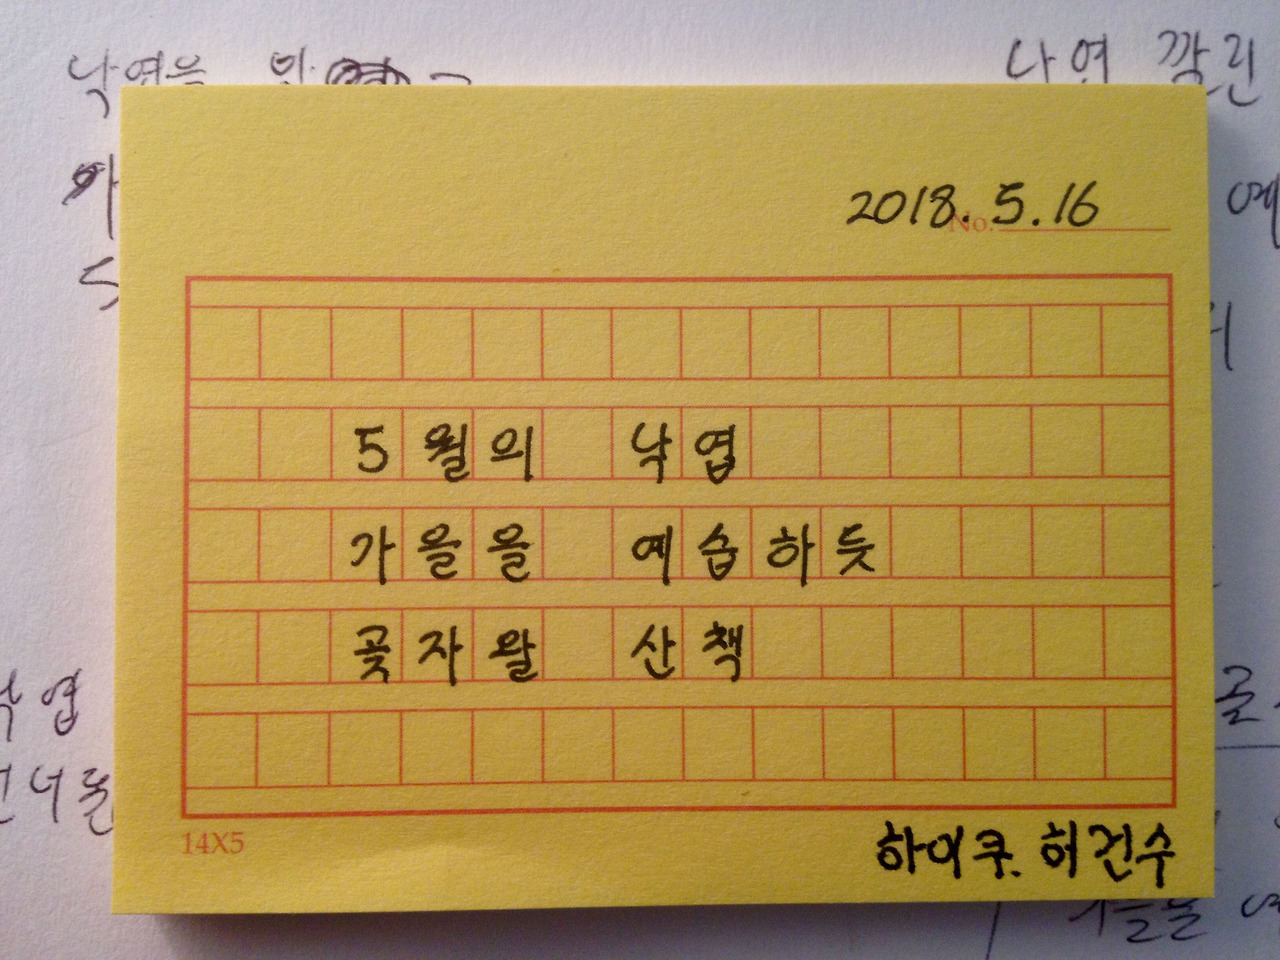 2018.5.16
No.
5월의 낙엽
가을을 예습하듯
곶자왈 산책
14X5
하이쿠. 허건수